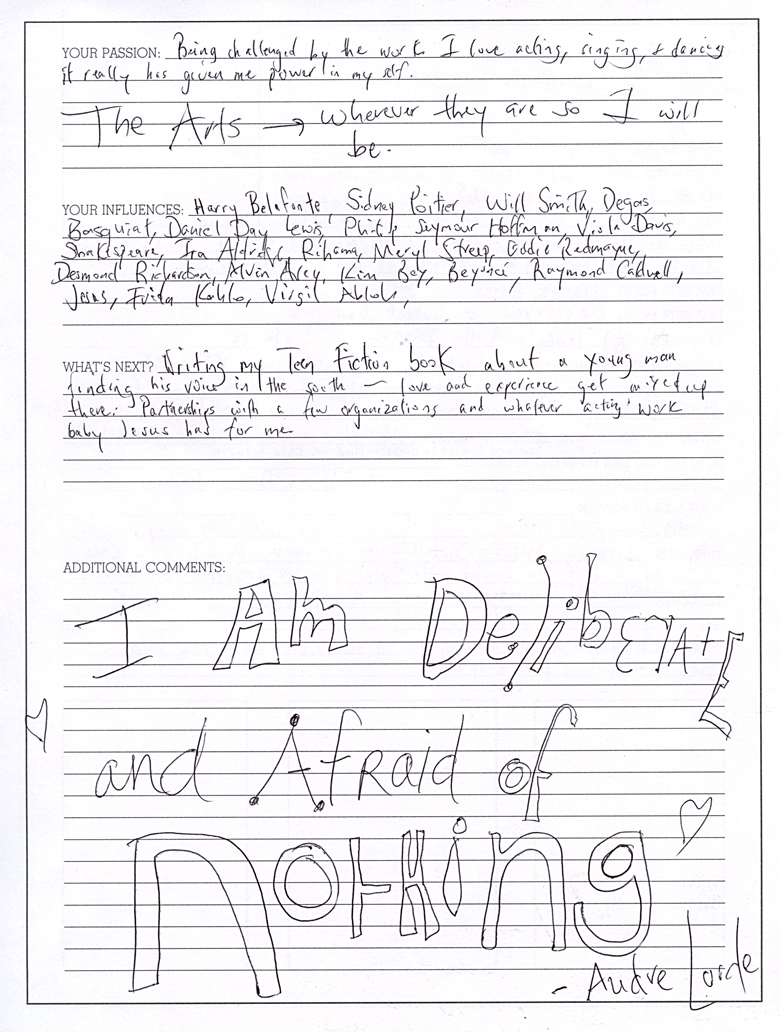 YOUR PASSION: Being challenged by the work I love acting, singing, & dancing
it really has given me power in my self.
The Arts → wherever they are so I will
be.
YOUR INFLUENCES: Harry Belafonte, Sidney Poitier, Will Smith, Degas,
Basquiat, Daniel Day Lewis, Philip Seymour Hoffman, Viola Davis,
Shakespeare, Ira Aldridge, Rihanna, Meryl Streep, Eddie Redmayne,
Desmond Richardson, Alvin Ailey, Kim Bey, Beyoncé, Raymond Caldwell,
Jesus, Frida Kahlo, Virgil Abloh,
WHAT'S NEXT? Writing my Teen Fiction book about a young man
finding his voice in the south — love and experience get mixed up
there. Partnerships with a few organizations and whatever acting work
baby Jesus has for me
ADDITIONAL COMMENTS:
I Am Deliberate
and Afraid of
Nothing
- Audre Lorde